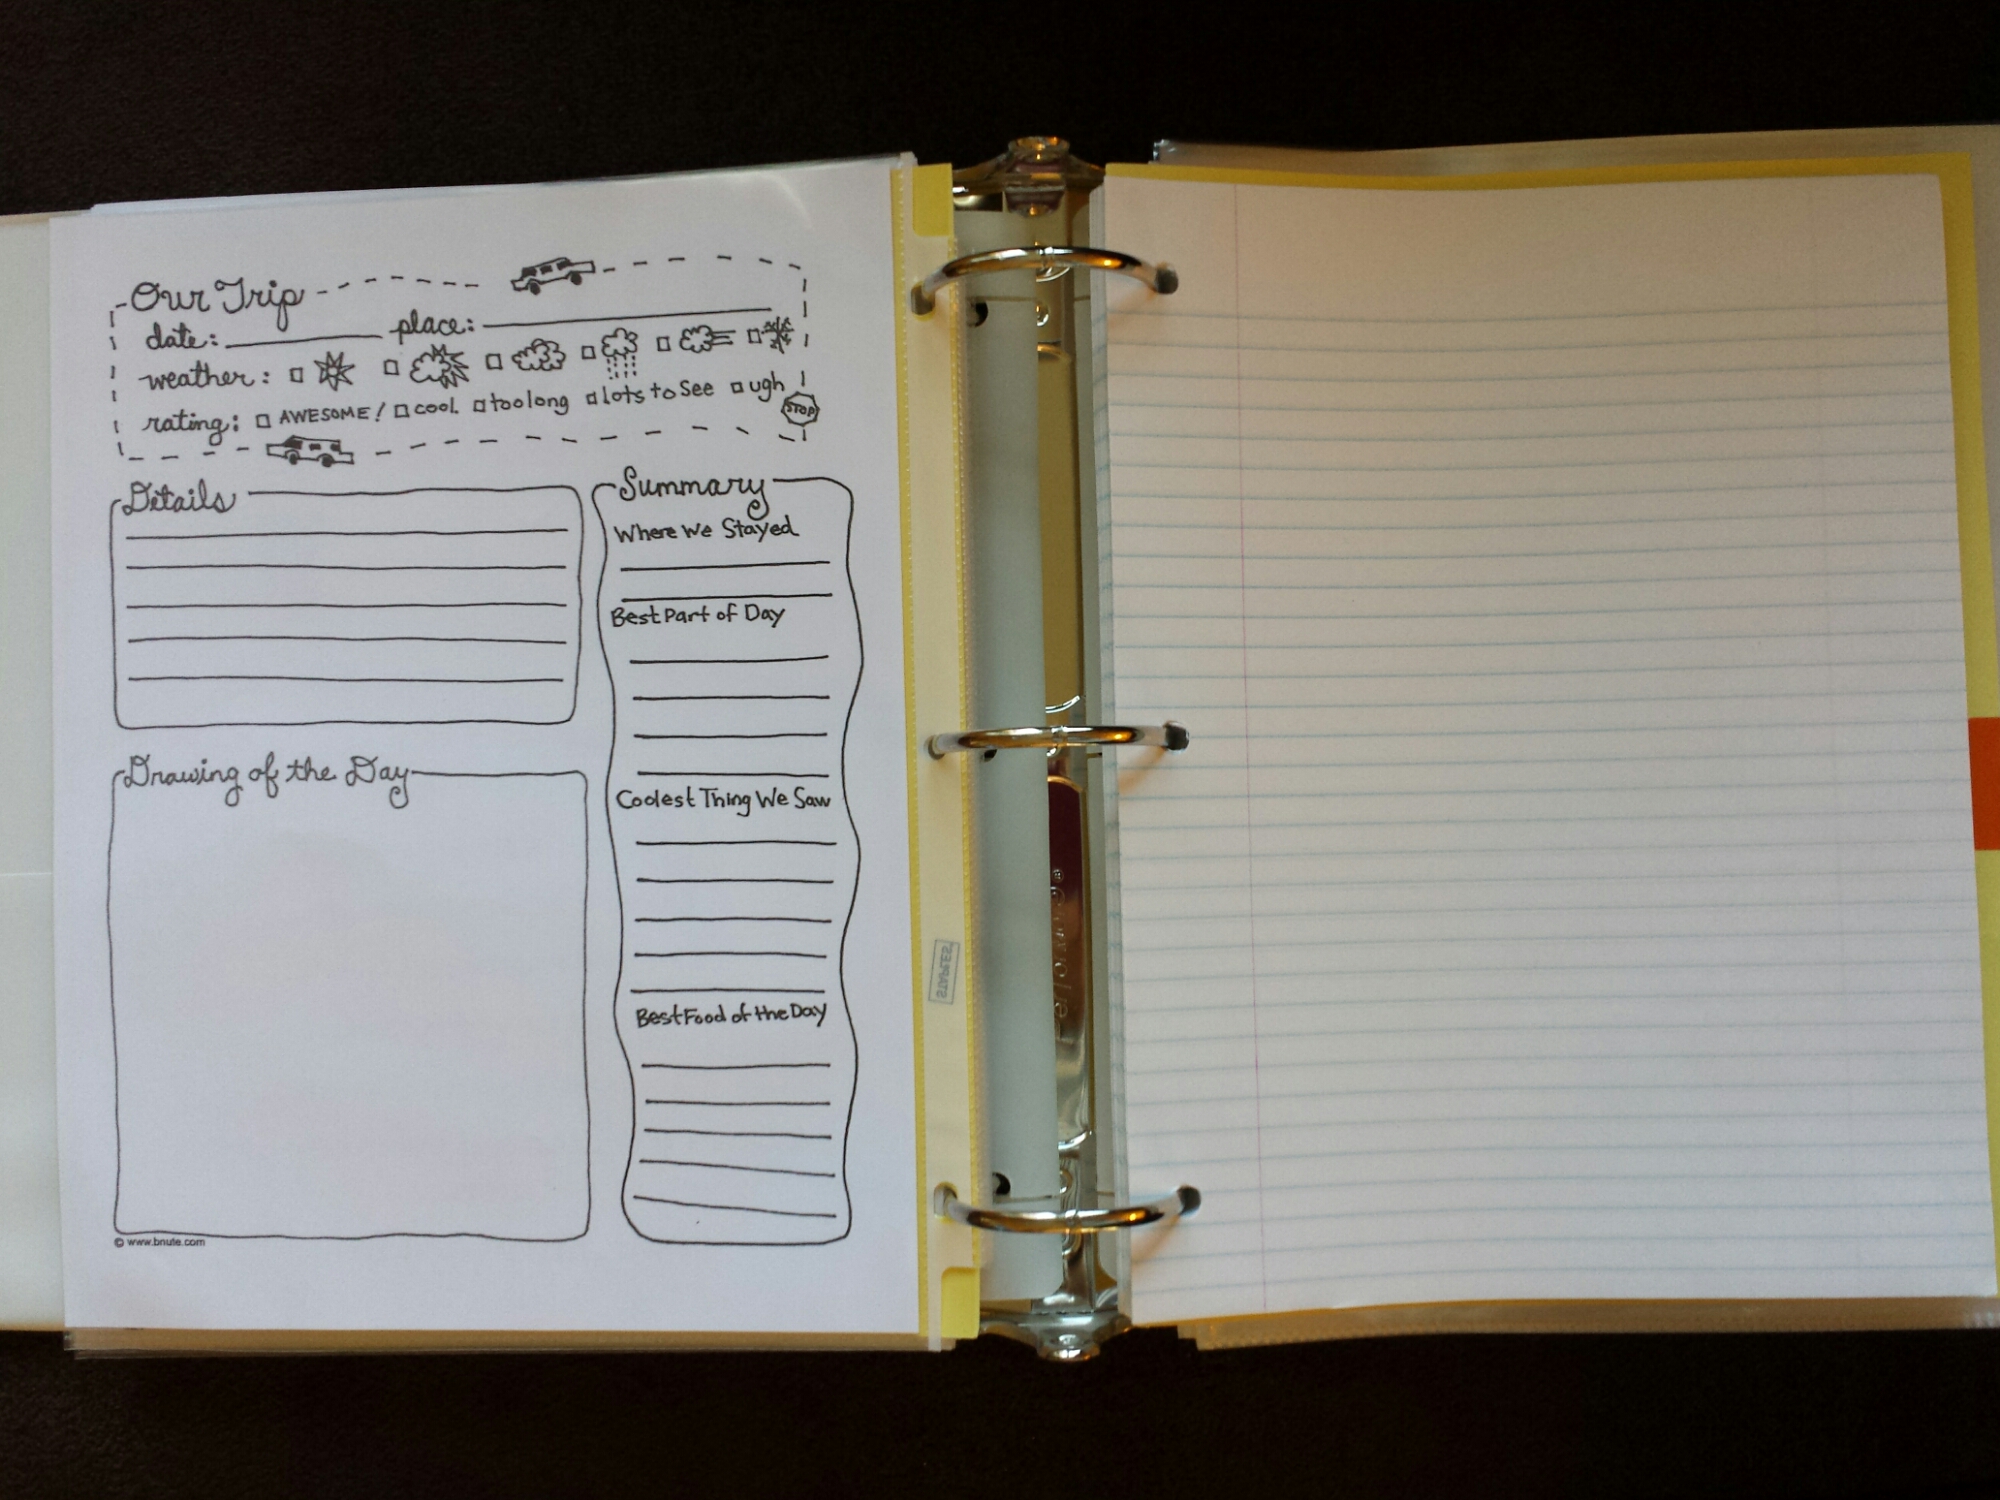 Our Trip
date: place:
weather:
rating: AWESOME! cool too long lots to see ugh
STOP
Details
Drawing of the Day
Summary
Where We Stayed
Best Part of Day
Coolest Thing We Saw
Best Food of the Day
© www.bnute.com
STAPLES